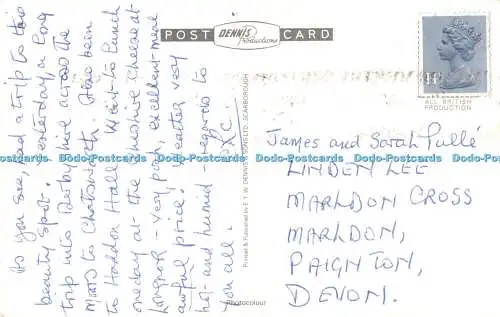 POST DENNIS Productions CARD
ALL BRITISH
PRODUCTION
As you see, had a trip to this
beauty spot. yesterday, a long
trip into Derbyshire across the
moors to Chatsworth. Also been
to Haddon Hall. Went to lunch
one day at the Cheshire Cheese at
Longnor - very posh, excellent meal
awful price. Weather very
hot and humid - regards to
you all.
Printed & Published by E. T. W. DENNIS & SONS LTD., SCARBOROUGH
Photocolour
James and Sarah Pullé
LINDEN LEE
MARLDON CROSS
MARLDON,
PAIGNTON,
DEVON.
Dodo-Postcards Dodo-Postcards Dodo-Postcards Dodo-Postcards Dodo-Postcards